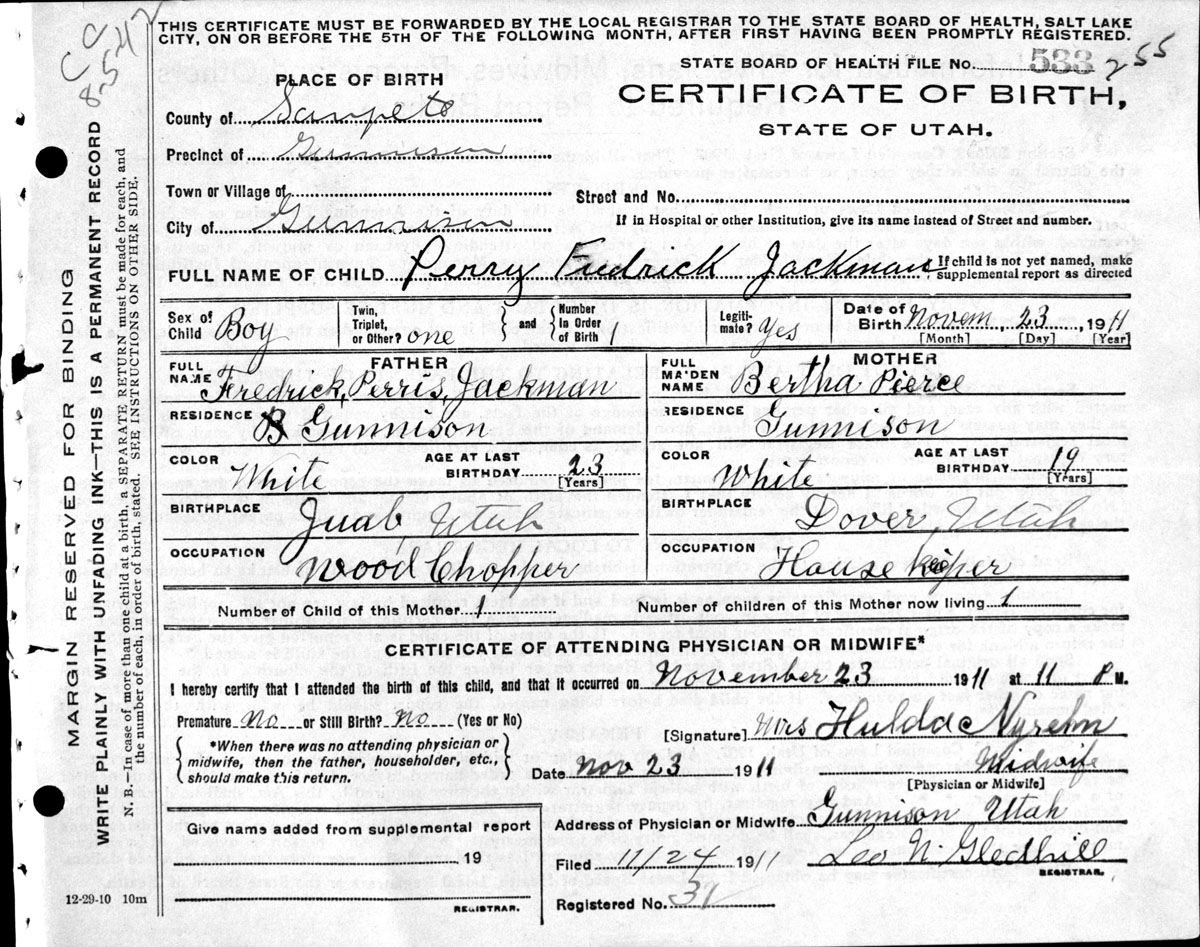 C C
8-5-47
THIS CERTIFICATE MUST BE FORWARDED BY THE LOCAL REGISTRAR TO THE STATE BOARD OF HEALTH, SALT LAKE
CITY, ON OR BEFORE THE 5TH OF THE FOLLOWING MONTH, AFTER FIRST HAVING BEEN PROMPTLY REGISTERED.
STATE BOARD OF HEALTH FILE No. 533 255
CERTIFICATE OF BIRTH,
STATE OF UTAH.
PLACE OF BIRTH
County of Sanpete
Precinct of Gunnison
Town or Village of
Street and No.
City of Gunnison
If in Hospital or other Institution, give its name instead of Street and number.
FULL NAME OF CHILD Perry Fredrick Jackman If child is not yet named, make supplemental report as directed
Sex of Child Boy Twin, Triplet, or Other? one and Number In Order of Birth 1 Legitimate? Yes Date of Birth Novem 23 1911
[Month] [Day] [Year]
FATHER
FULL NAME Fredrick, Perris, Jackman
RESIDENCE Gunnison
COLOR White AGE AT LAST BIRTHDAY 23
[Years]
BIRTHPLACE Juab, Utah
OCCUPATION Wood Chopper
MOTHER
FULL MAIDEN NAME Bertha Pierce
RESIDENCE Gunnison
COLOR White AGE AT LAST BIRTHDAY 19
[Years]
BIRTHPLACE Dover, Utah
OCCUPATION House Keeper
Number of Child of this Mother 1 Number of children of this Mother now living 1
CERTIFICATE OF ATTENDING PHYSICIAN OR MIDWIFE*
I hereby certify that I attended the birth of this child, and that it occurred on November 23 1911 at 11 P M.
Premature No or Still Birth? No (Yes or No)
*When there was no attending physician or
midwife, then the father, householder, etc.,
should make this return.
[Signature] Mrs Hulda Nyrehn
Date Nov 23 1911 Midwife
[Physician or Midwife]
Give name added from supplemental report
19
REGISTRAR.
Address of Physician or Midwife Gunnison Utah
Filed 11/24 1911 Leo N. Gledhill
REGISTRAR.
Registered No. 37
12-29-10 10m
MARGIN RESERVED FOR BINDING
WRITE PLAINLY WITH UNFADING INK—THIS IS A PERMANENT RECORD
N. B.—In case of more than one child at a birth, a SEPARATE RETURN must be made for each, and
the number of each, in order of birth, stated. SEE INSTRUCTIONS ON OTHER SIDE.